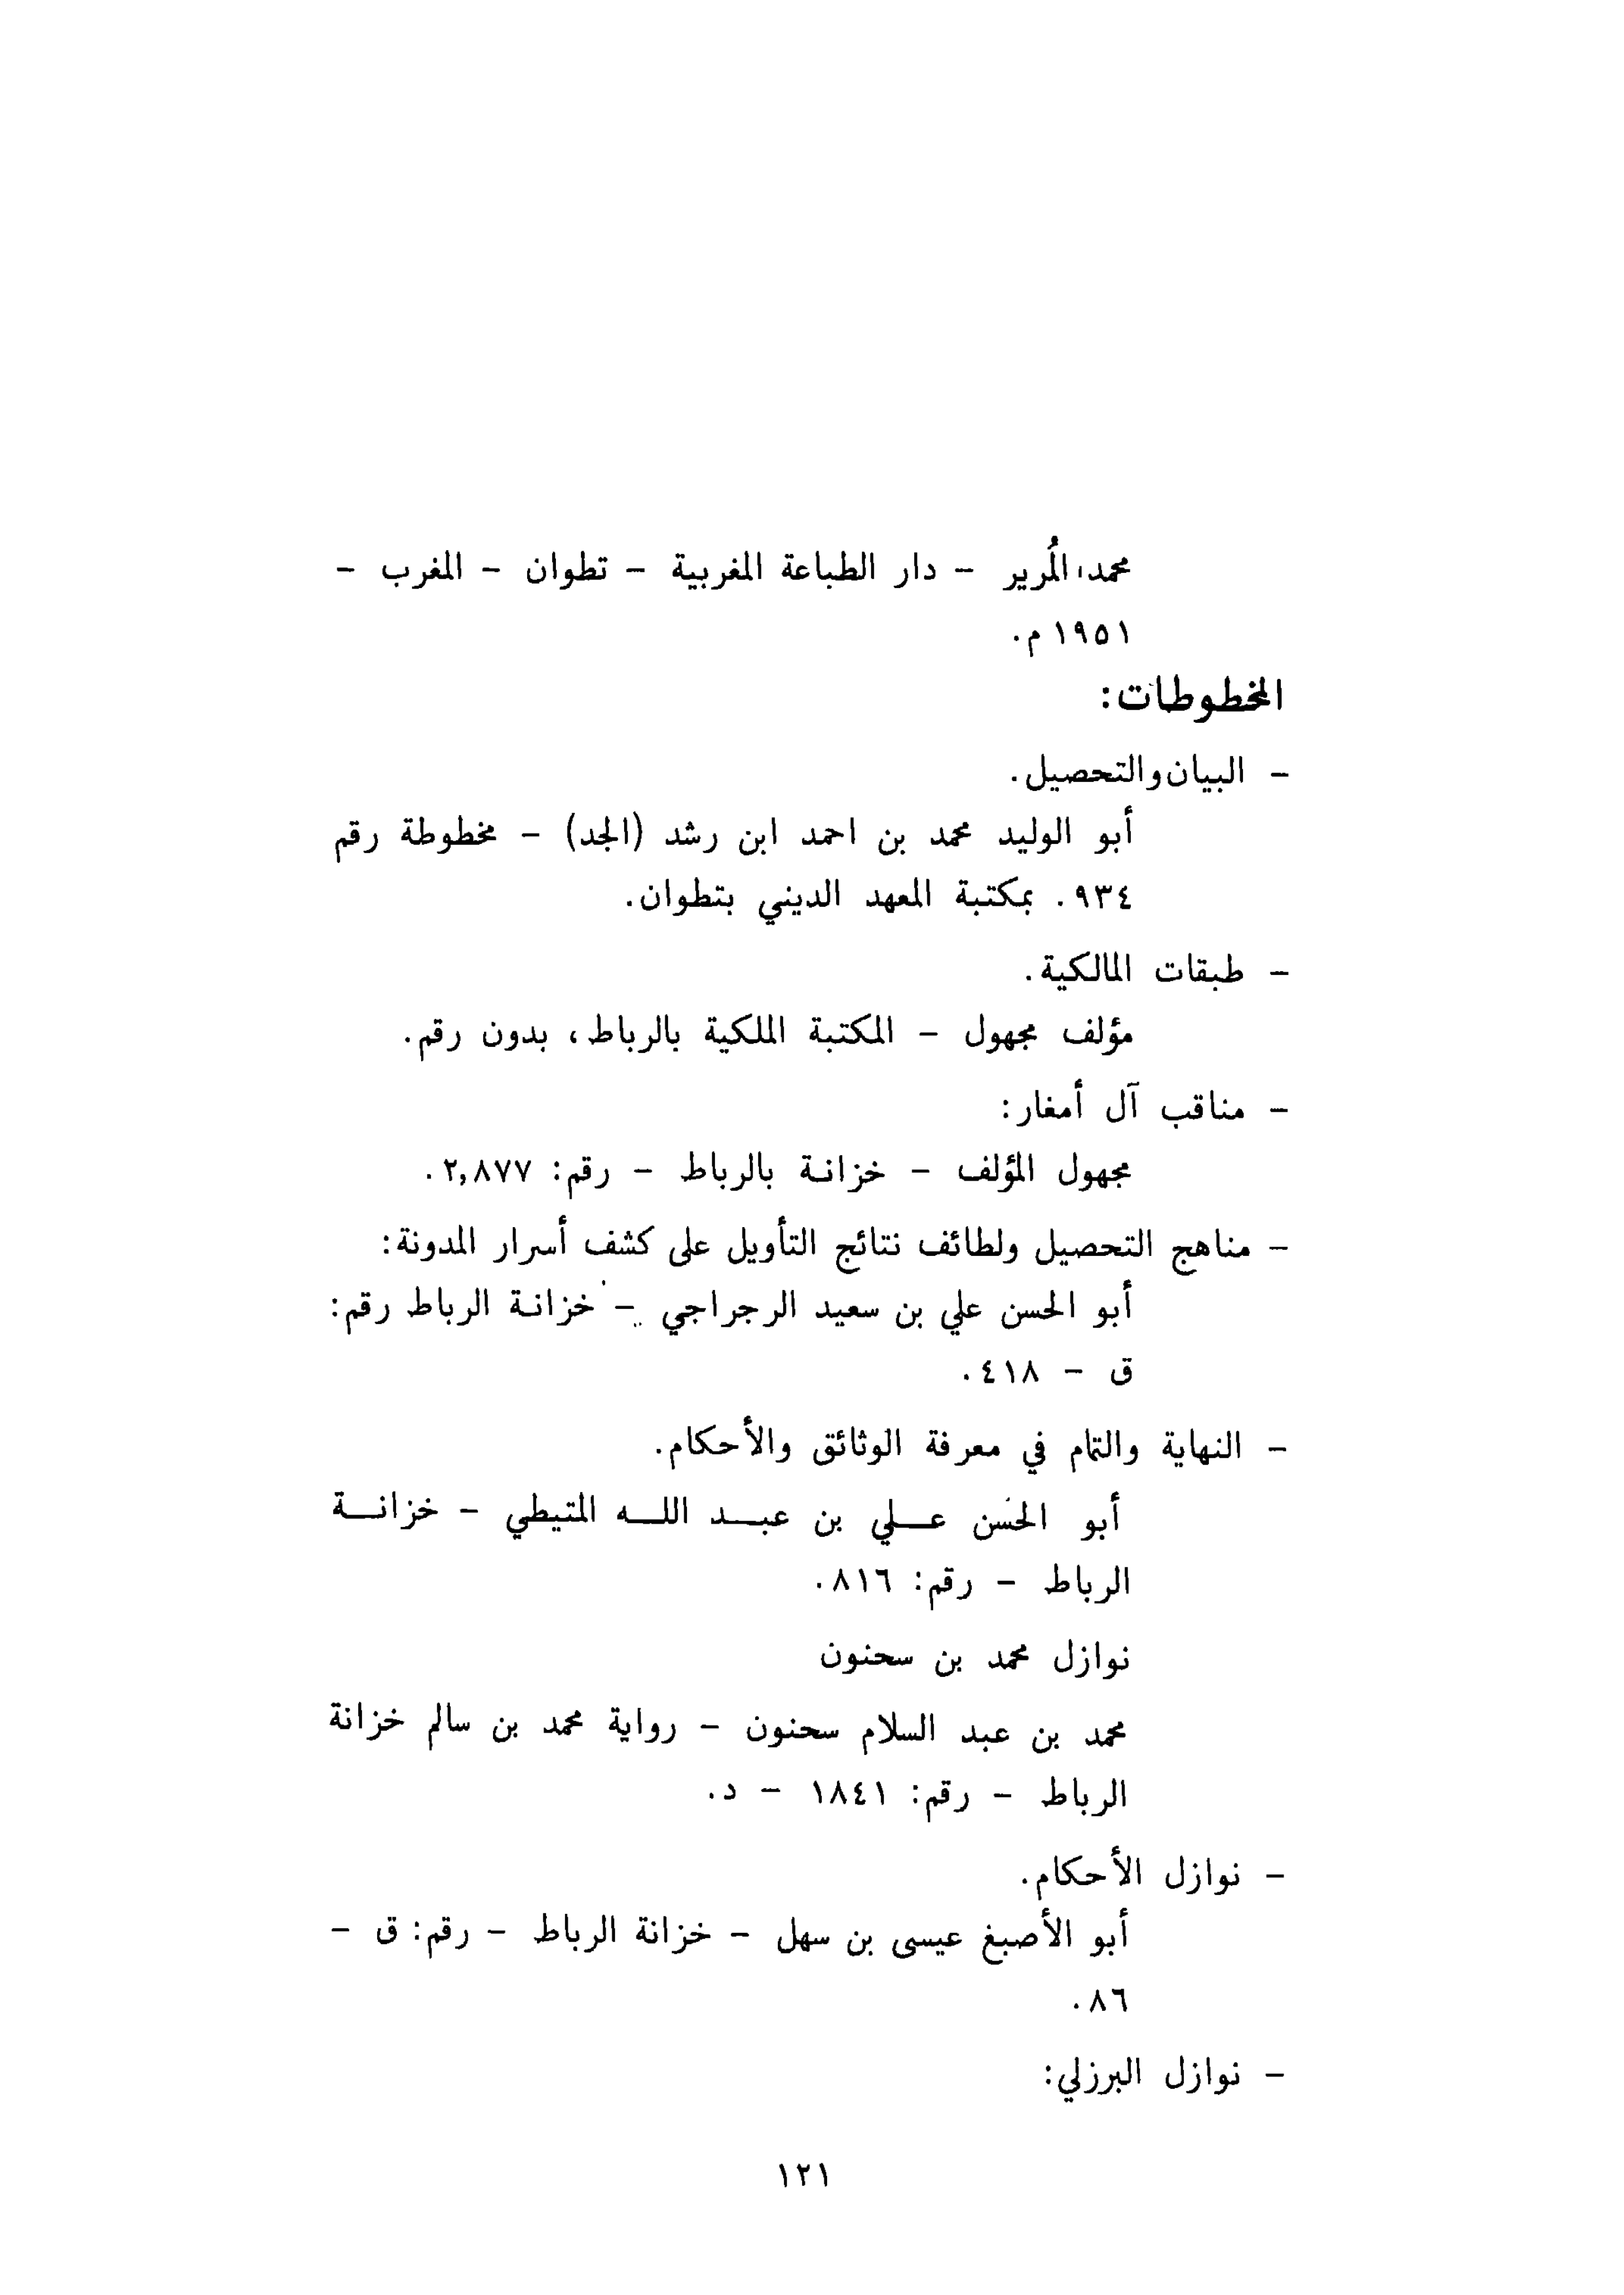 محمد المُرير - دار الطباعة المغربية - تطوان - المغرب -
١٩٥١ م.
المخطوطات:
- البيان والتحصيل.
أبو الوليد محمد بن احمد ابن رشد (الجد) - مخطوطة رقم
٩٣٤. بمكتبة المعهد الديني بتطوان.
- طبقات المالكية.
مؤلف مجهول - المكتبة الملكية بالرباط، بدون رقم.
- مناقب آل أمغار:
مجهول المؤلف - خزانة بالرباط - رقم: ٢,٨٧٧.
- مناهج التحصيل ولطائف نتائج التأويل على كشف أسرار المدونة:
أبو الحسن علي بن سعيد الرجراجي - خزانة الرباط رقم:
ق - ٤١٨.
- النهاية والتمام في معرفة الوثائق والأحكام.
أبو الحسن عـلي بن عبـد اللـه المتيطي - خزانـة
الرباط - رقم: ٨١٦.
نوازل محمد بن سحنون
محمد بن عبد السلام سحنون - رواية محمد بن سالم خزانة
الرباط - رقم: ١٨٤١ - د.
- نوازل الأحكام.
أبو الأصبغ عيسى بن سهل - خزانة الرباط - رقم: ق -
٨٦.
- نوازل البرزلي:
١٢١